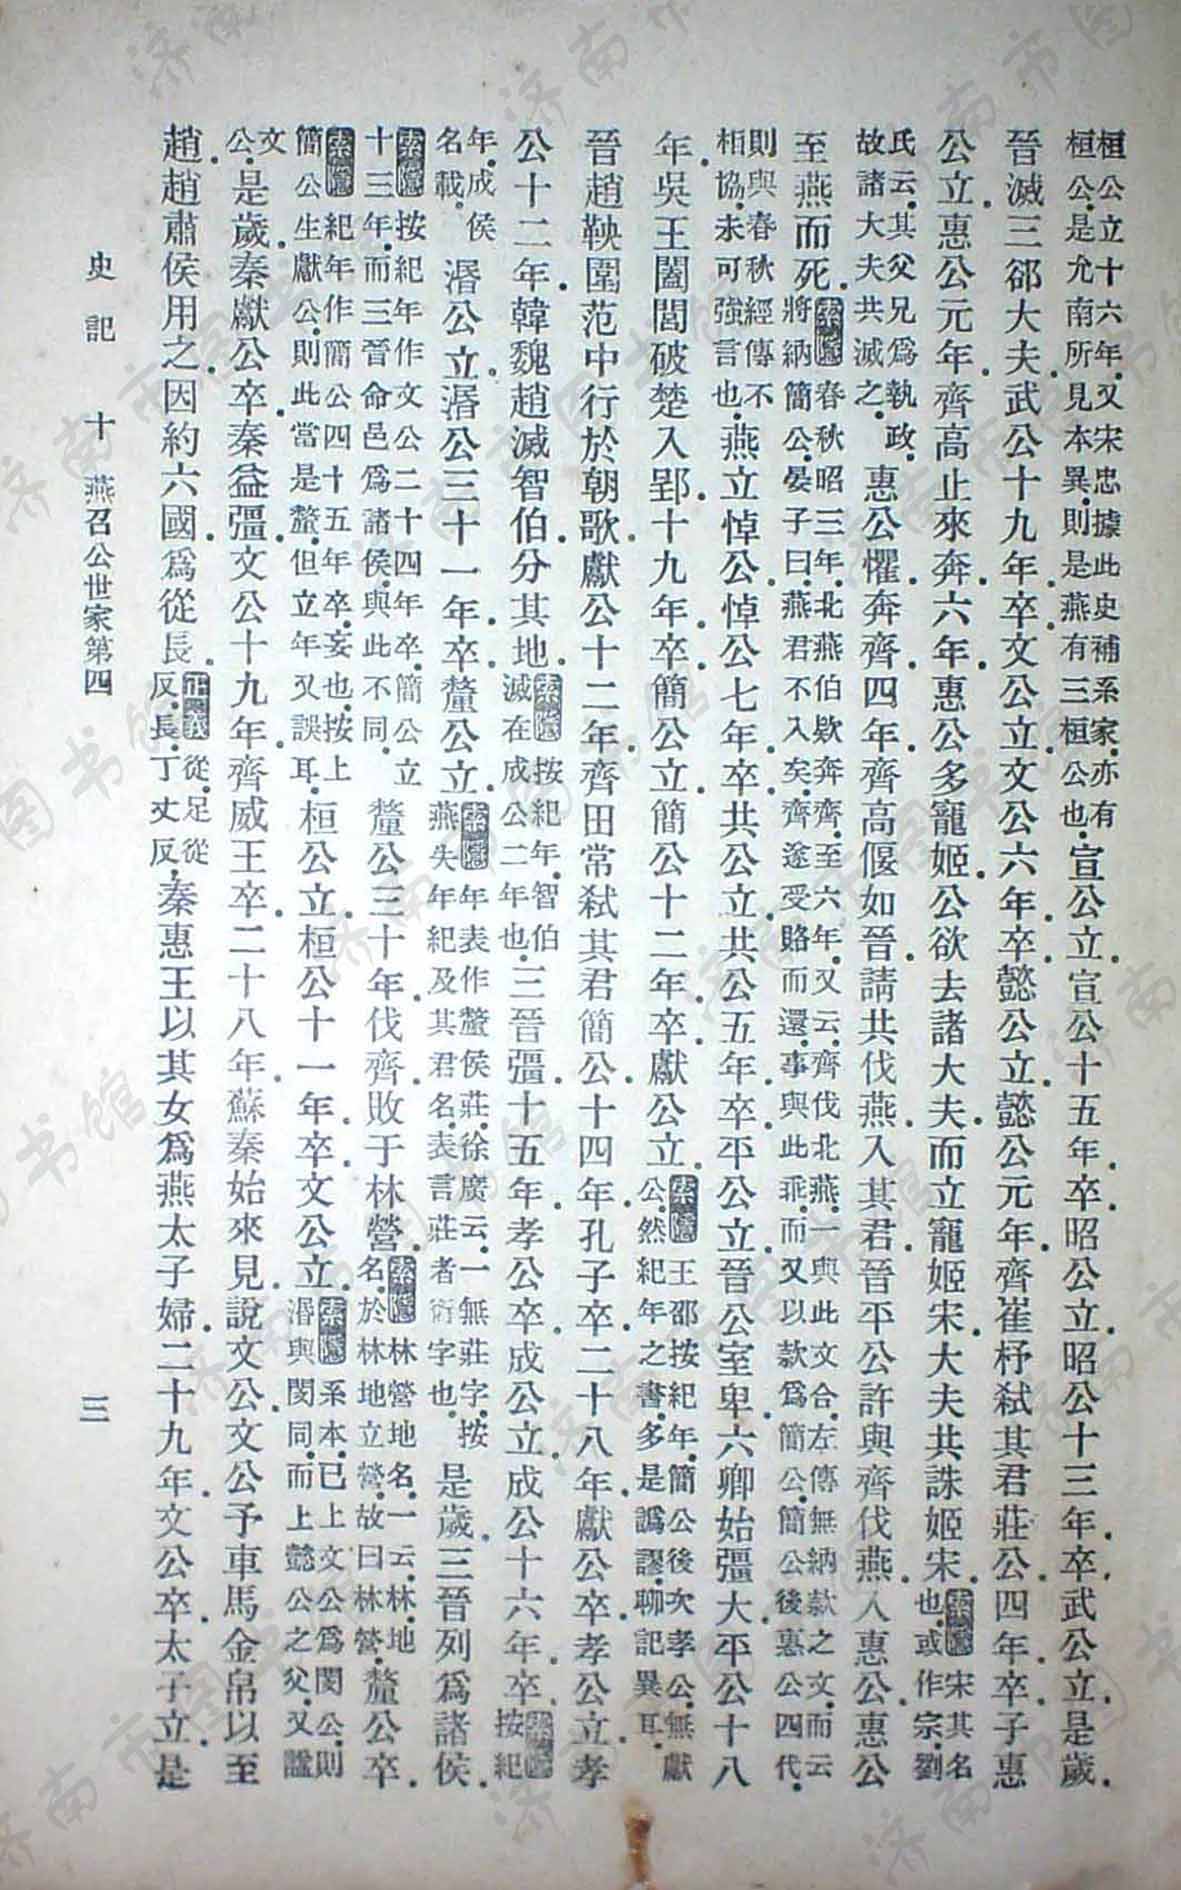 桓公立十六年.又宋忠據此史補系家.亦有桓公.是允南所見本異.則是燕有三桓公也.宣公立.宣公十五年.卒.昭公立.昭公十三年.卒.武公立.是歲.
晉滅三郤大夫.武公十九年.卒.文公立.文公六年.卒.懿公立.懿公元年.齊崔杼弒其君莊公.四年.卒.子惠
公立.惠公元年.齊高止來奔.六年.惠公多寵姬.公欲去諸大夫.而立寵姬宋.大夫共誅姬宋.索隱宋其名也.或作宗.劉
氏云.其父兄爲執政.故諸大夫共滅之.惠公懼.奔齊.四年.齊高偃如晉.請共伐燕.入其君.晉平公許與齊伐燕.入惠公.惠公
至燕而死.索隱春秋昭三年.北燕伯欵奔齊.至六年.又云.齊伐北燕.一與此文合.左傳無納款之文.而云將納簡公.晏子曰.燕君不入矣.齊遂受賂而還.事與此乖.而又以款爲簡公.簡公後惠公四代.
則與春秋經傳不相協.未可強言也.燕立悼公.悼公七年.卒.共公立.共公五年.卒.平公立.晉公室卑.六卿始彊大.平公十八
年.吳王闔閭破楚入郢.十九年.卒.簡公立.簡公十二年.卒.獻公立.索隱王邵按紀年.簡公後次孝公.無獻公.然紀年之書.多是譌謬.聊記異耳.
晉趙鞅圍范中行於朝歌.獻公十二年.齊田常弒其君簡公.十四年.孔子卒.二十八年.獻公卒.孝公立.孝
公十二年.韓魏趙滅智伯.分其地.索隱按紀年.智伯滅在成公二年也.三晉彊.十五年.孝公卒.成公立.成公十六年.卒.索隱按紀
年.成侯名載.湣公立.湣公三十一年.卒.釐公立.索隱年表作釐侯莊.徐廣云.一無莊字.按燕失年紀及其君名.表言莊者.衍字也.是歲.三晉列爲諸侯.
索隱按紀年作文公二十四年卒.簡公立十三年.而三晉命邑爲諸侯.與此不同.釐公三十年.伐齊.敗于林營.索隱林營.地名.一云.林.地名.於林地立營.故曰林營.釐公卒.
索隱紀年作簡公四十五年卒.妄也.按上簡公生獻公.則此當是釐.但立年又誤耳.桓公立.桓公十一年.卒.文公立.索隱系本.已上文公爲閔公.則湣與閔同.而上懿公之父.又諡
文公.是歲.秦獻公卒.秦益彊.文公十九年.齊威王卒.二十八年.蘇秦始來見.說文公.文公予車馬金帛以至
趙.趙肅侯用之.因約六國.爲從長.正義從.足從反.長.丁丈反.秦惠王以其女爲燕太子婦.二十九年.文公卒.太子立.是
史記 十 燕召公世家第四 三